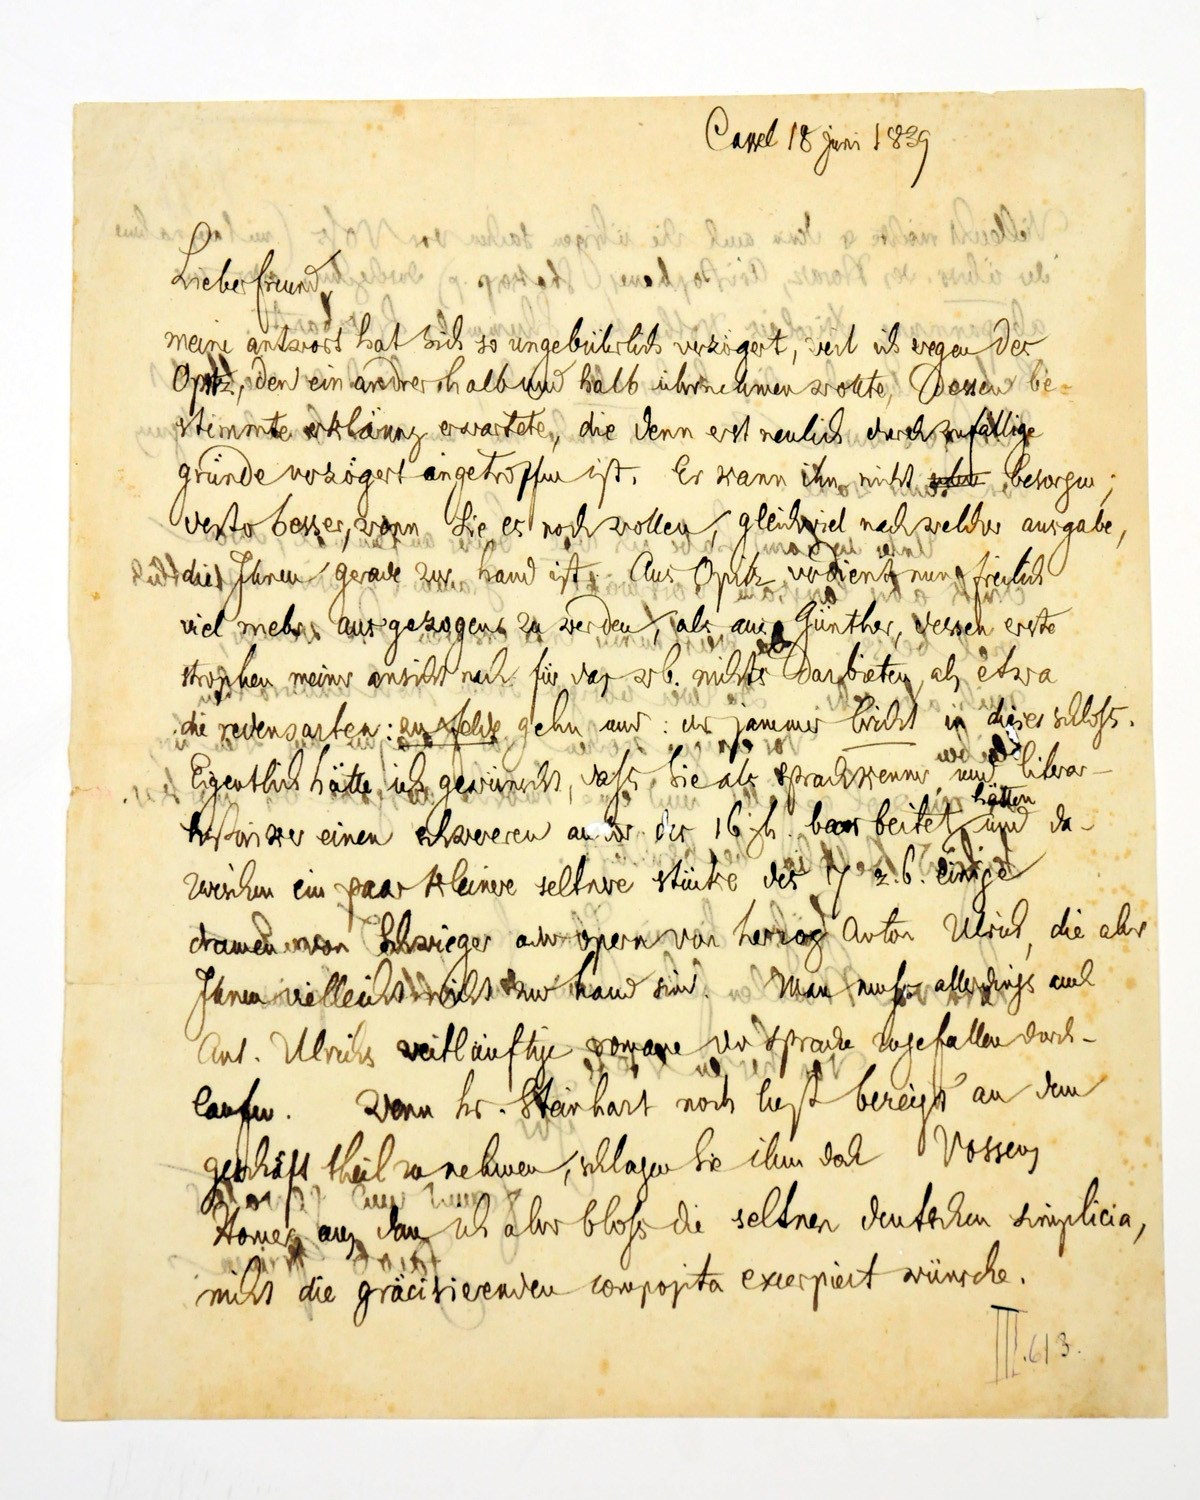 Cassel 18 juni 1839
Lieber freund,
meine antwort hat sich so ungebürlich verzögert, weil ich wegen der
Opitz, den ein andrer halb und halb übernehmen wollte, dessen be-
stimmte erklärung erwartete, die denn erst neulich durch zufällige
gründe verzögert eingetroffen ist. Er kann ihn nicht besorgen;
desto besser, wenn Sie es noch wollen, gleichviel nach welcher ausgabe,
die Ihnen gerade zur hand ist. Aus Opitz verdient nun freilich
viel mehr ausgezogen zu werden, als aus Günther, dessen erste
strophen meiner ansicht nach für das wb. nichts darbieten, als etwa
die redensarten: zu felde gehn und: der jammer bricht in dieses schloß.
Eigentlich hätte ich gewünscht, daß Sie als sprachkenner und literar-
historiker einen schweren autor des 16 jh. bearbeitet hätten und da-
zwischen ein paar kleinere seltnere stücke des 17 z.b. einige
dramen von Schwieger oder opern von herzog Anton Ulrich, die aber
Ihnen vielleicht nicht zur hand sind. Man muß allerdings auch
Ant. Ulrichs weitläuftige romane der sprache zugefallen durch-
laufen. Wenn hr. Steinhart noch lust bezeigt an dem
geschäft theil zu nehmen, schlagen Sie ihm doch Vossens
Homer aus dem ich aber bloß die seltnen deutschen simplicia,
nicht die gräcisierenden composita excerpiert wünsche.
III.613.